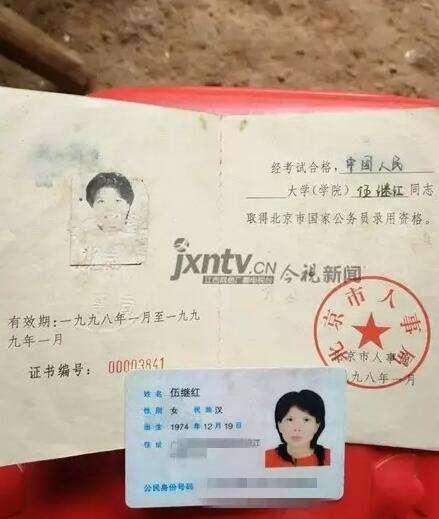 经考试合格，中国人民
大学(学院)伍继红同志
取得北京市国家公务员录用资格。
jxntv.CN
今视新闻
有效期：一九九八年一月至一九九
九年一月
证书编号：00003841
北京市人事局
北京市人事局
一九九八年一月
姓名 伍继红
性别 女 民族 汉
出生 1974 年 12 月 19 日
住址
公民身份号码